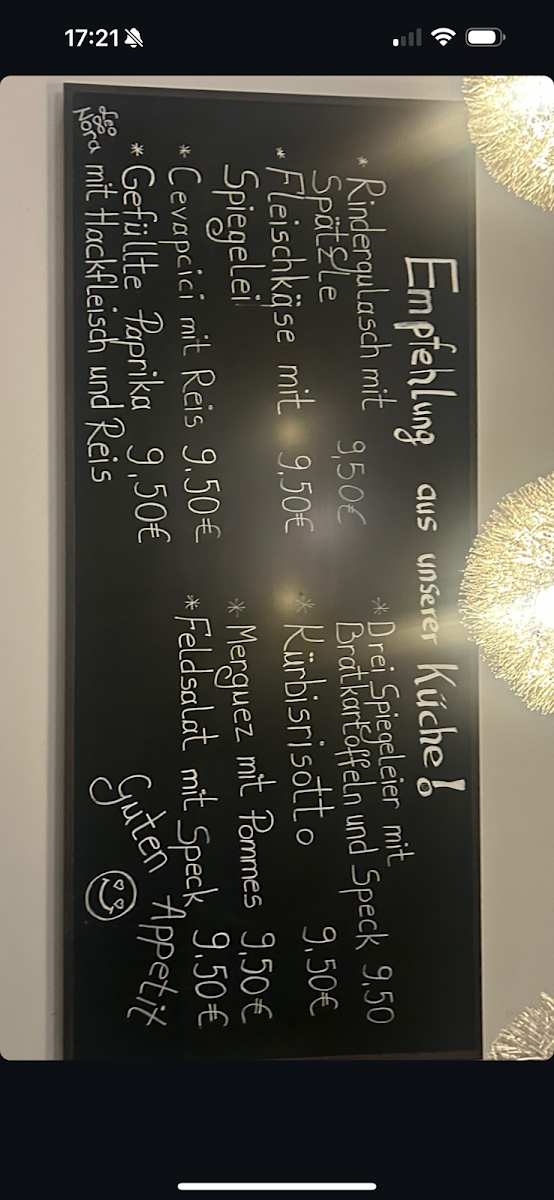 17:21
Empfehlung aus unserer Küche!
* Rindergulasch mit
Spätzle 9,50€
* Fleischkäse mit 9,50€
Spiegelei
* Cevapcici mit Reis 9.50€
* Gefüllte Paprika 9,50€
mit Hackfleisch und Reis
Leo
Nora
* Drei Spiegeleier mit
Bratkartoffeln und Speck 9,50
* Kürbisrisotto 9,50€
* Merguez mit Pommes 9,50€
* Feldsalat mit Speck 9,50€
Guten Appetit